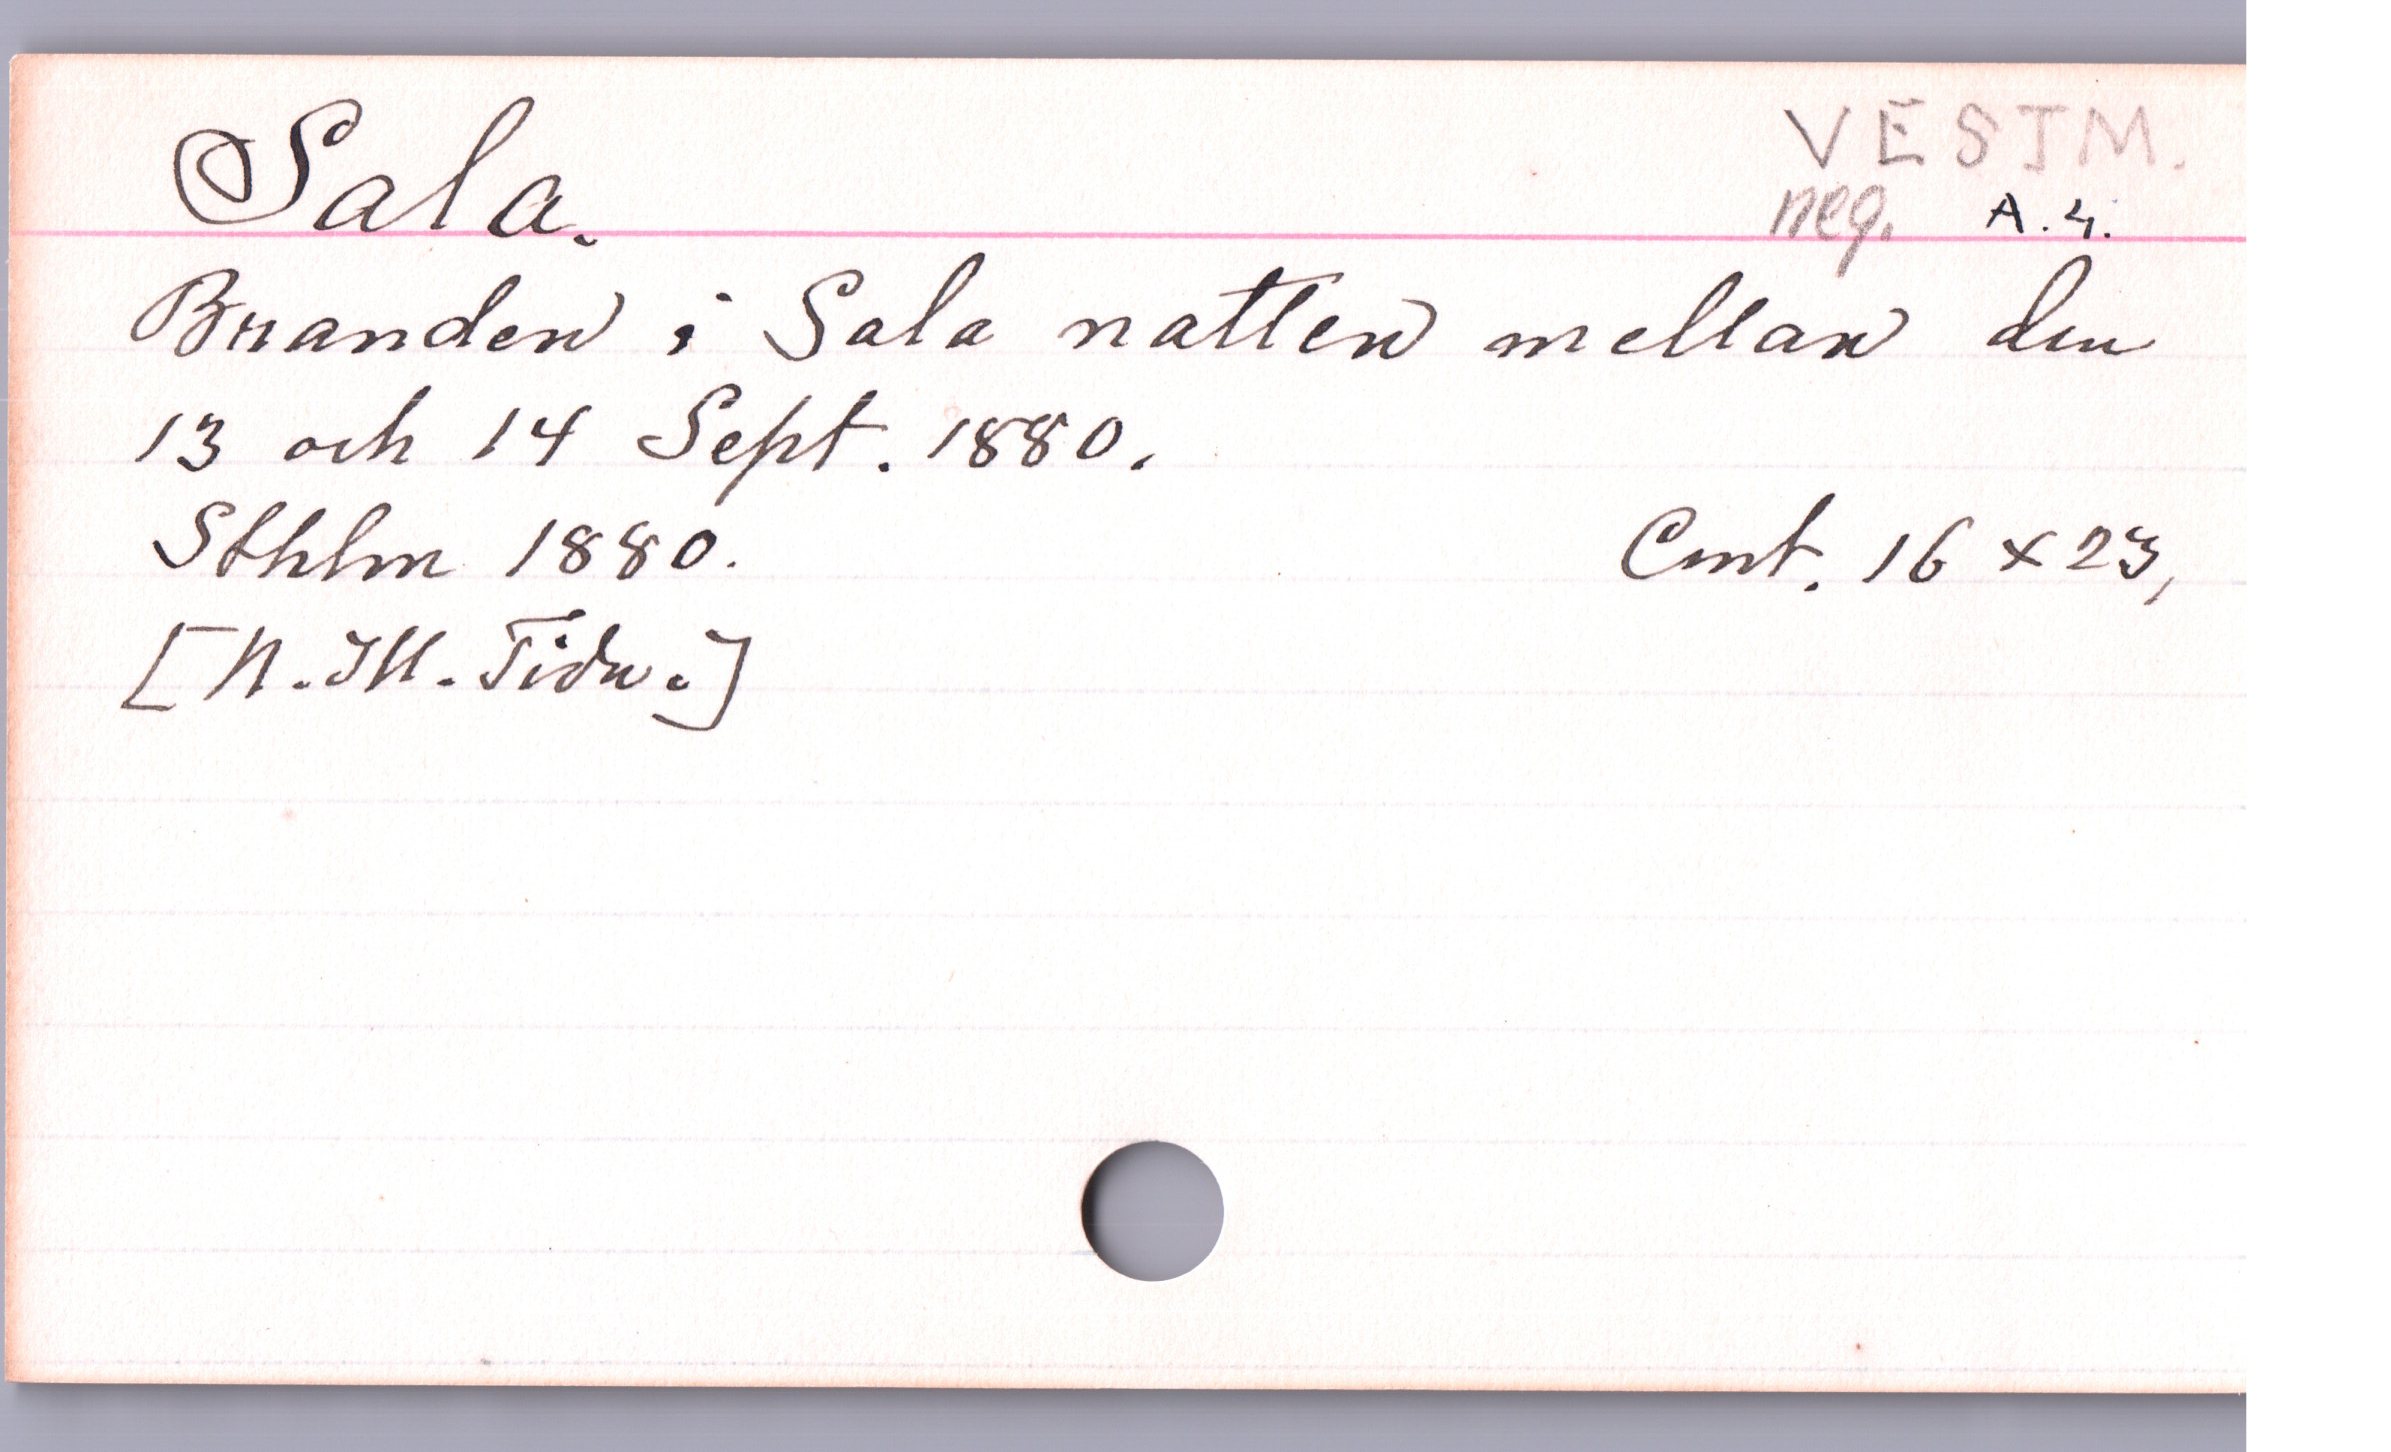 Sala.
VESTM.
neg. A.4.
Branden i Sala natten mellan den
13 och 14 Sept. 1880.
Sthlm 1880. Cmt. 16 x 23,
[N. Ill. Tidn.]